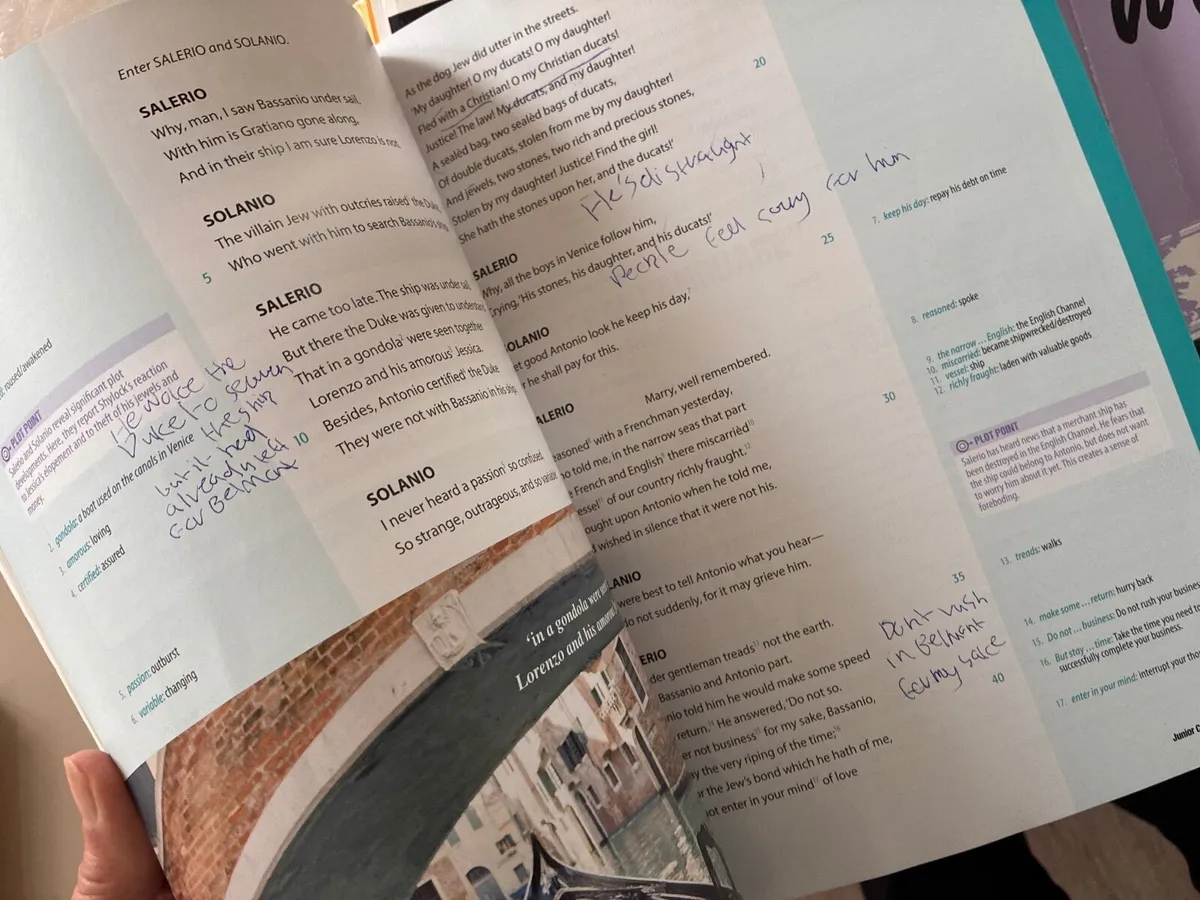 Enter SALERIO and SOLANIO.
SALERIO
Why, man, I saw Bassanio under sail.
With him is Gratiano gone along,
And in their ship I am sure Lorenzo is not.
SOLANIO
The villain Jew with outcries raised¹ the Duke,
5 Who went with him to search Bassanio's
SALERIO
He came too late. The ship was under sail.
But there the Duke was given to understand
That in a gondola² were seen together
Lorenzo and his amorous³ Jessica.
10 Besides, Antonio certified⁴ the Duke
They were not with Bassanio in his ship.
SOLANIO
I never heard a passion⁵ so confused,
So strange, outrageous, and so variable
roused/awakened
PLOT POINT
Salerio and Solanio reveal significant plot
developments. Here, they report Shylock's reaction
to Jessica's elopement and to theft of his jewels and
money.
He woke the
Duke to search
the ship
but it had
already left
for Belmont
2. gondola: a boat used on the canals in Venice
3. amorous: loving
4. certified: assured
5. passion: outburst
6. variable: changing
'in a gondola were
Lorenzo and his
As the dog Jew did utter in the streets.
'My daughter! O my ducats! O my daughter!
Fled with a Christian! O my Christian ducats!
Justice! The law! My ducats, and my daughter!
A sealèd bag, two sealèd bags of ducats,
20
Of double ducats, stolen from me by my daughter!
And jewels, two stones, two rich and precious stones,
Stolen by my daughter! Justice! Find the girl!
She hath the stones upon her, and the ducats!'
He's distraught
SALERIO
Why, all the boys in Venice follow him,
Crying, 'His stones, his daughter, and his ducats!'
People feel sorry for him
25
SOLANIO
good Antonio look he keep his day,⁷
he shall pay for this.
SALERIO
Marry, well remembered.
with a Frenchman yesterday,
told me, in the narrow seas that part
30
French and English⁹ there miscarrièd¹⁰
of our country richly fraught.¹²
upon Antonio when he told me,
wished in silence that it were not his.
were best to tell Antonio what you hear—
not suddenly, for it may grieve him.
35
gentleman treads¹³ not the earth.
Bassanio and Antonio part.
told him he would make some speed
return.¹⁴ He answered, 'Do not so.
40
not business¹⁵ for my sake, Bassanio,
the very riping of the time;¹⁶
the Jew's bond which he hath of me,
not enter in your mind¹⁷ of love
Dont rush
in Belmont
for my sake
7. keep his day: repay his debt on time
8. reasoned: spoke
9. the narrow ... English: the English Channel
10. miscarried: became shipwrecked/destroyed
11. vessel: ship
12. richly fraught: laden with valuable goods
PLOT POINT
Salerio has heard news that a merchant ship has
been destroyed in the English Channel. He fears that
the ship could belong to Antonio, but does not want
to worry him about it yet. This creates a sense of
foreboding.
13. treads: walks
14. make some ... return: hurry back
15. Do not ... business: Do not rush your business
16. But stay ... time: Take the time you need to
successfully complete your business.
17. enter in your mind: interrupt your
Junior